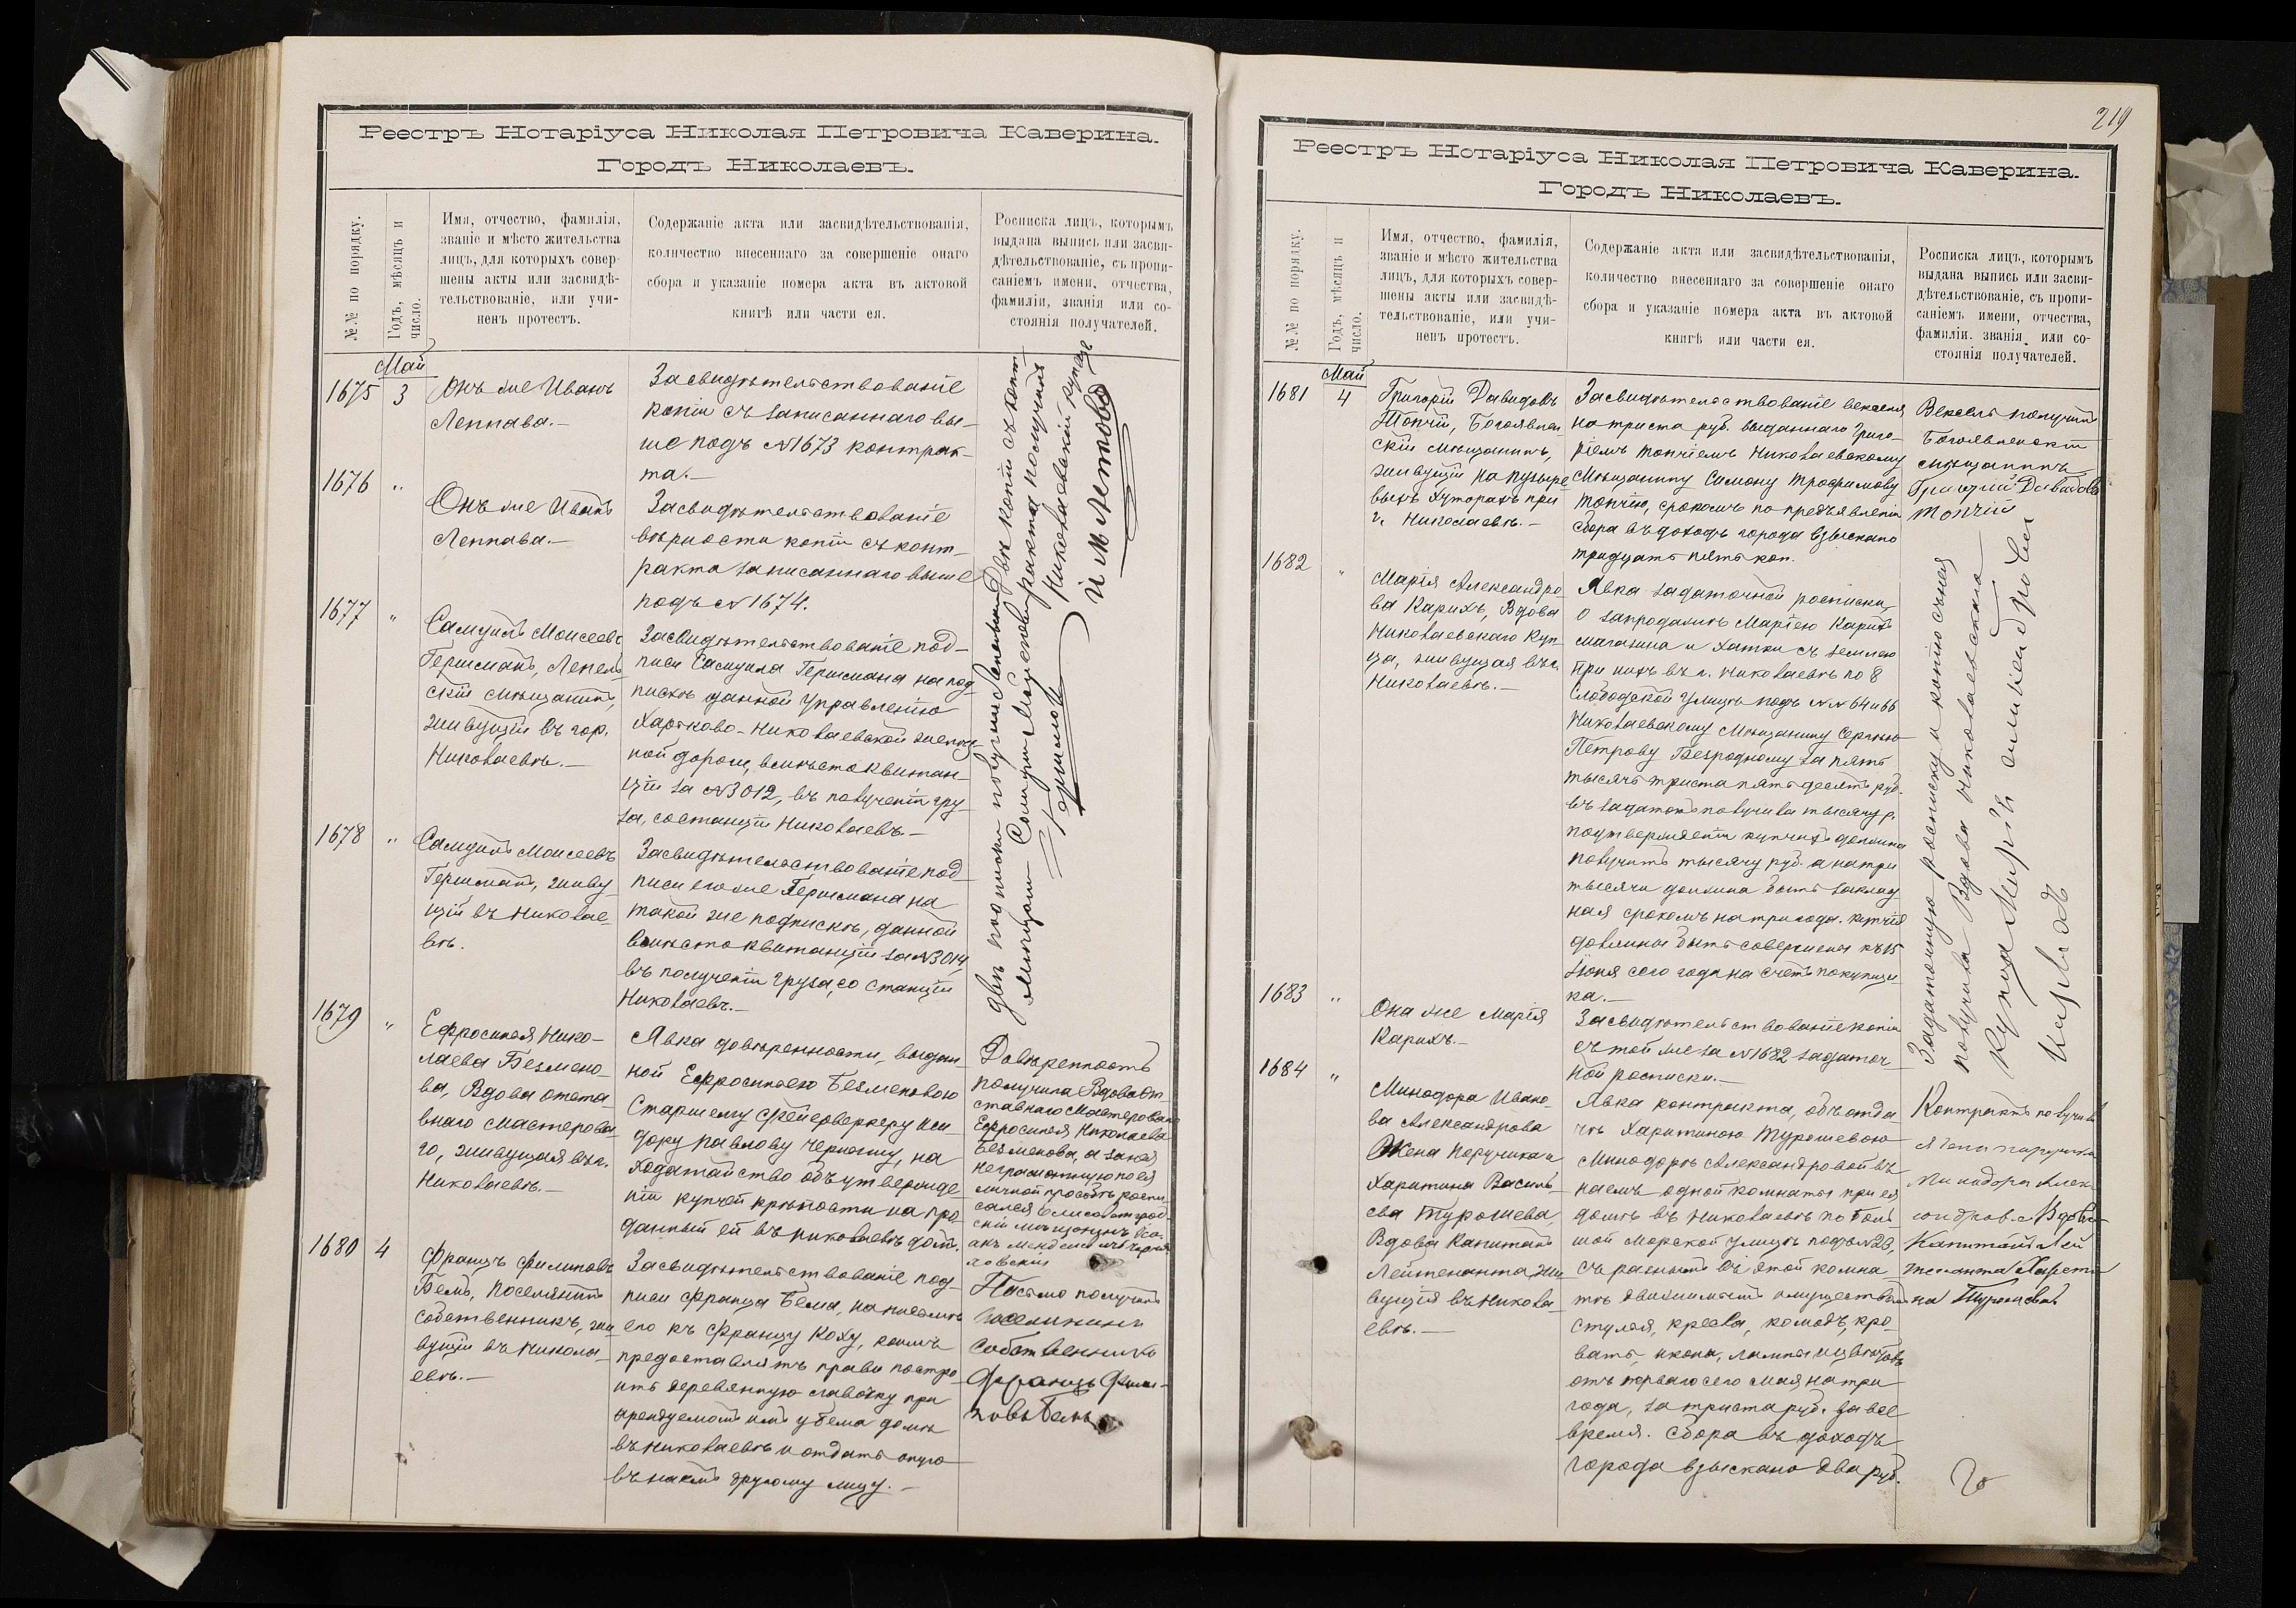 Реестръ Нотаріуса Николая Петровича Каверина.
Городъ Николаевъ.
№№ по порядку.
Годъ, мѣсяцъ и
число.
Имя, отчество, фамилія,
званіе и мѣсто жительства
лицъ, для которыхъ совер-
шены акты или засвидѣ-
тельствованіе, или учи-
ненъ протестъ.
Содержаніе акта или засвидѣтельствованія,
количество внесеннаго за совершеніе онаго
сбора и указаніе номера акта въ актовой
книгѣ или части ея.
Росписка лицъ, которымъ
выдана выпись или засви-
дѣтельствованіе, съ пропи-
саніемъ имени, отчества,
фамиліи, званія или со-
стоянія получателей.
Май
1675
3
Онъ же Иванъ
Леппава.-
Засвидѣтельствованіе
копіи съ записаннаго вы-
ше подъ №1673 контрак-
та.-
1676
"
Онъ же Иванъ
Леппава.-
Засвидѣтельствованіе
вѣрности копіи съ конт-
ракта записаннаго выше
подъ №1674.
Двѣ копіи съ конт-
ракта получилъ
Николаевскій купецъ
И М Летовъ
1677
"
Самуилъ Моисеевъ
Гершманъ, Лепель-
скій мѣщанинъ,
живущій въ гор.
Николаевѣ.-
Засвидѣтельствованіе под-
писи Самуила Гершмана на под-
пискѣ данной Управленію
Харьково-Николаевской желѣз-
ной дороги, вмѣсто квитан-
ціи за №3012, въ полученіи гру-
за, со станціи Николаевъ.-
1678
"
Самуилъ Моисеевъ
Гершманъ, живу-
щій въ Николае-
вѣ.
Засвидѣтельствованіе под-
писи его же Гершмана на
такой же подпискѣ, данной
вмѣсто квитанціи за №3014,
въ полученіи груза, со станціи
Николаевъ.-
двѣ подписки получилъ
Гершманъ
1679
"
Ефросинья Нико-
лаева Безмено-
ва, Вдова отста-
внаго мастерова-
го, живущая въ г.
Николаевѣ.-
Явка довѣренности, выдан-
ной Ефросиньею Безменовою
Старшему Фейерверкеру Иси-
дору Павлову Черному, на
ходатайство объ утвержде-
ніи купчей крѣпости на про-
данный ей въ Николаевѣ домъ.
Довѣренность
получила Вдова от-
ставнаго Мастероваго
Ефросинья Николаева
Безменова, а за нея
неграмотную по ея
личной просьбѣ роспи-
сался Елисаветград-
скій мѣщанинъ Иса-
акъ
1680
4
Францъ Филиповъ
Бемъ, Поселянинъ
собственникъ, жи-
вущій въ Никола-
евѣ.-
Засвидѣтельствованіе под-
писи Франца Бема, на письмѣ
его къ Францу Коху, коимъ
предоставляетъ право постро-
ить деревянную лавочку при
арендуемомъ имъ у Бема домѣ
въ Николаевѣ и отдать оную
въ наемъ другому лицу.-
Письмо получилъ
поселянинъ
собственникъ
Францъ Фили-
повъ Бемъ
219
Реестръ Нотаріуса Николая Петровича Каверина.
Городъ Николаевъ.
№№ по порядку.
Годъ, мѣсяцъ и
число.
Имя, отчество, фамилія,
званіе и мѣсто жительства
лицъ, для которыхъ совер-
шены акты или засвидѣ-
тельствованіе, или учи-
ненъ протестъ.
Содержаніе акта или засвидѣтельствованія,
количество внесеннаго за совершеніе онаго
сбора и указаніе номера акта въ актовой
книгѣ или части ея.
Росписка лицъ, которымъ
выдана выпись или засви-
дѣтельствованіе, съ пропи-
саніемъ имени, отчества,
фамиліи. званія или со-
стоянія получателей.
Май
1681
4
Григорій Давидовъ
Топчій, Богоявлен-
скій мѣщанинъ,
живущій на Пузыре-
выхъ Хуторахъ при
г. Николаевѣ.-
Засвидѣтельствованіе векселя
на триста руб. выданнаго Григо-
ріемъ Топчіемъ Николаевскому
Мѣщанину Самону Трофимову
Топчію, срокомъ по предъявленіи
сбора въ доходъ города взыскано
тридцать пять коп.
Вексель получилъ
Богоявленскій
мѣщанинъ
Григорій Давидовъ
Топчій
1682
"
Марія Александро-
ва Карихъ, Вдова
Николаевскаго Куп-
ца, живущая въ г.
Николаевѣ.-
Явка задаточной росписки,
о запродажѣ Маріею Карихъ
магазина и хатки съ землею
при нихъ въ г. Николаевѣ по 8
Слободской Улицѣ подъ №№ 64 и 66
Николаевскому Мѣщанину Сергѣю
Петрову Безродному за пять
тысячъ триста пятьдесятъ руб.
въ задатокъ получила тысячу р.
по утвержденіи купчей должна
получить тысячу руб. а на три
тысячи должна быть заклад-
ная срокомъ на три года. купчая
должна быть совершена къ 15
Іюня сего года на счетъ покупщи-
ка.-
1683
"
Она же Марія
Карихъ.-
Засвидѣтельствованіе копіи
съ той же за №1682 задаточ-
ной росписки.-
Задаточную росписку и копію съ нея
получила Вдова Николаевскаго
купца Марія Александрова
Карихъ
1684
"
Минодора Ивано-
ва Александрова
Жена Поручика и
Харитина Василь-
ева Турошева,
Вдова Капитанъ
Лейтенанта, жи-
вущія въ Никола-
евѣ.-
Явка контракта, объ отда-
чѣ Харитиною Турошевою
Минодорѣ Александровой въ
наемъ одной комнаты при ея
домѣ въ Николаевѣ по Боль-
шой Морской Улицѣ подъ №23,
съ разнымъ въ этой комна-
тѣ движимымъ имуществомъ
стулья, кресла, комодъ, кро-
вать, икона, лампы и цвѣтовъ
отъ перваго сего мая на три
года, за триста руб. за все
время. Сбора въ доходъ
города взыскано два руб.
Контрактъ получила
Жена поручика
Минодора Алек-
сандрова Вдова
Капитанъ Лей
тенанта Харити
на Турошева